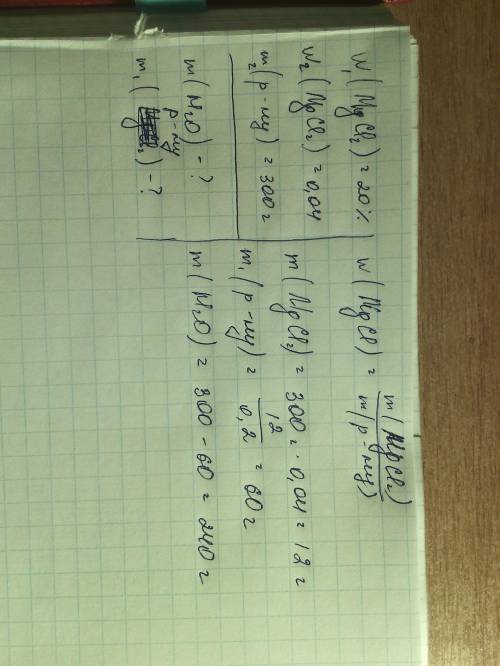 W₁(MgCl₂) = 20%
W₂(MgCl₂) = 0,04
m₂(р-ну) = 300г
m(H₂O) - ?
m₁(р-ну) - ?
W(MgCl) = m(MgCl₂) / m(р-ну)
m(MgCl₂) = 300г · 0,04 = 12г
m₁(р-ну) = 12 / 0,2 = 60г
m(H₂O) = 300 - 60 = 240г